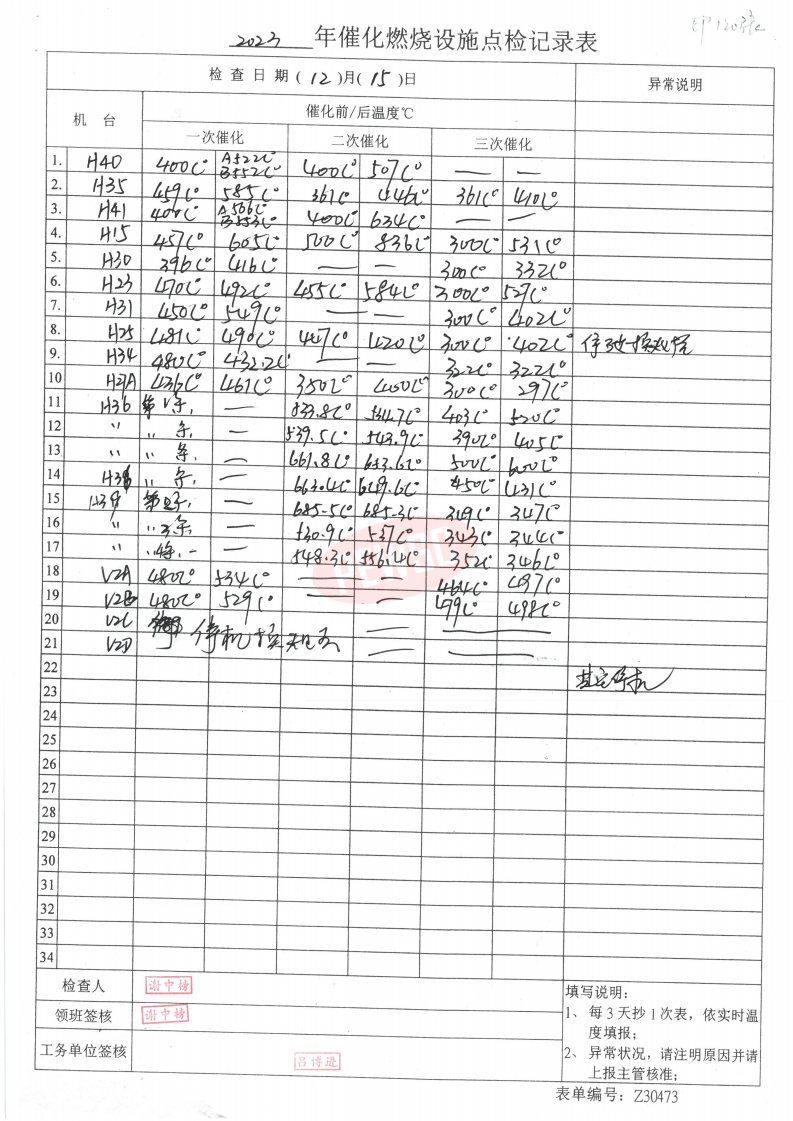 2023 年催化燃烧设施点检记录表
检查日期(12)月(15)日 异常说明
机 台 催化前/后温度℃
一次催化 二次催化 三次催化
1. H40 400C° A522C° B552C° 400C° 507C° — —
2. H35 459C° 585C° 361C° 446C° 361C° 410C°
3. H41 400C° A566C° B553C° 400C° 634C° — —
4. H15 457C° 605C° 500C° 836C° 300C° 531C°
5. H30 396C° 416C° — — 300C° 332C°
6. H23 470C° 492C° 455C° 584C° 300C° 527C°
7. H31 450C° 549C° 300C° 402C°
8. H25 481C° 490C° 447C° 420C° 300C° 402C°
9. H34 480C° 432.2C° 322C° 322C°
10 H2A 436C° 461C° 350C° 400C° 300C° 297C°
11 H36 — 533.8C° 534.7C° 403C° 520C°
12 〃 〃 — 539.5C° 543.9C° 390C° 405C°
13 〃 〃 — 661.8C° 653.6C° 500C° 600C°
14 〃 — 663.4C° 649.6C° 450C° 431C°
15 H39 — 685.5C° 685.3C° 349C° 347C°
16 〃 — 530.9C° 537C° 343C° 344C°
17 〃 — 548.3C° 556.4C° 352C° 346C°
18 V2A 480C° 534C° — — 464C° 497C°
19 V2B 480C° 529C° — — 499C° 498C°
20 V2C — —
21 V2D 停机 — —
22
23 其它停机
24
25
26
27
28
29
30
31
32
33
34
检查人 谢中榜
领班签核 谢中榜
工务单位签核 吕博进
填写说明:
1、每3天抄1次表，依实时温
度填报;
2、异常状况，请注明原因并请
上报主管核准;
表单编号: Z30473